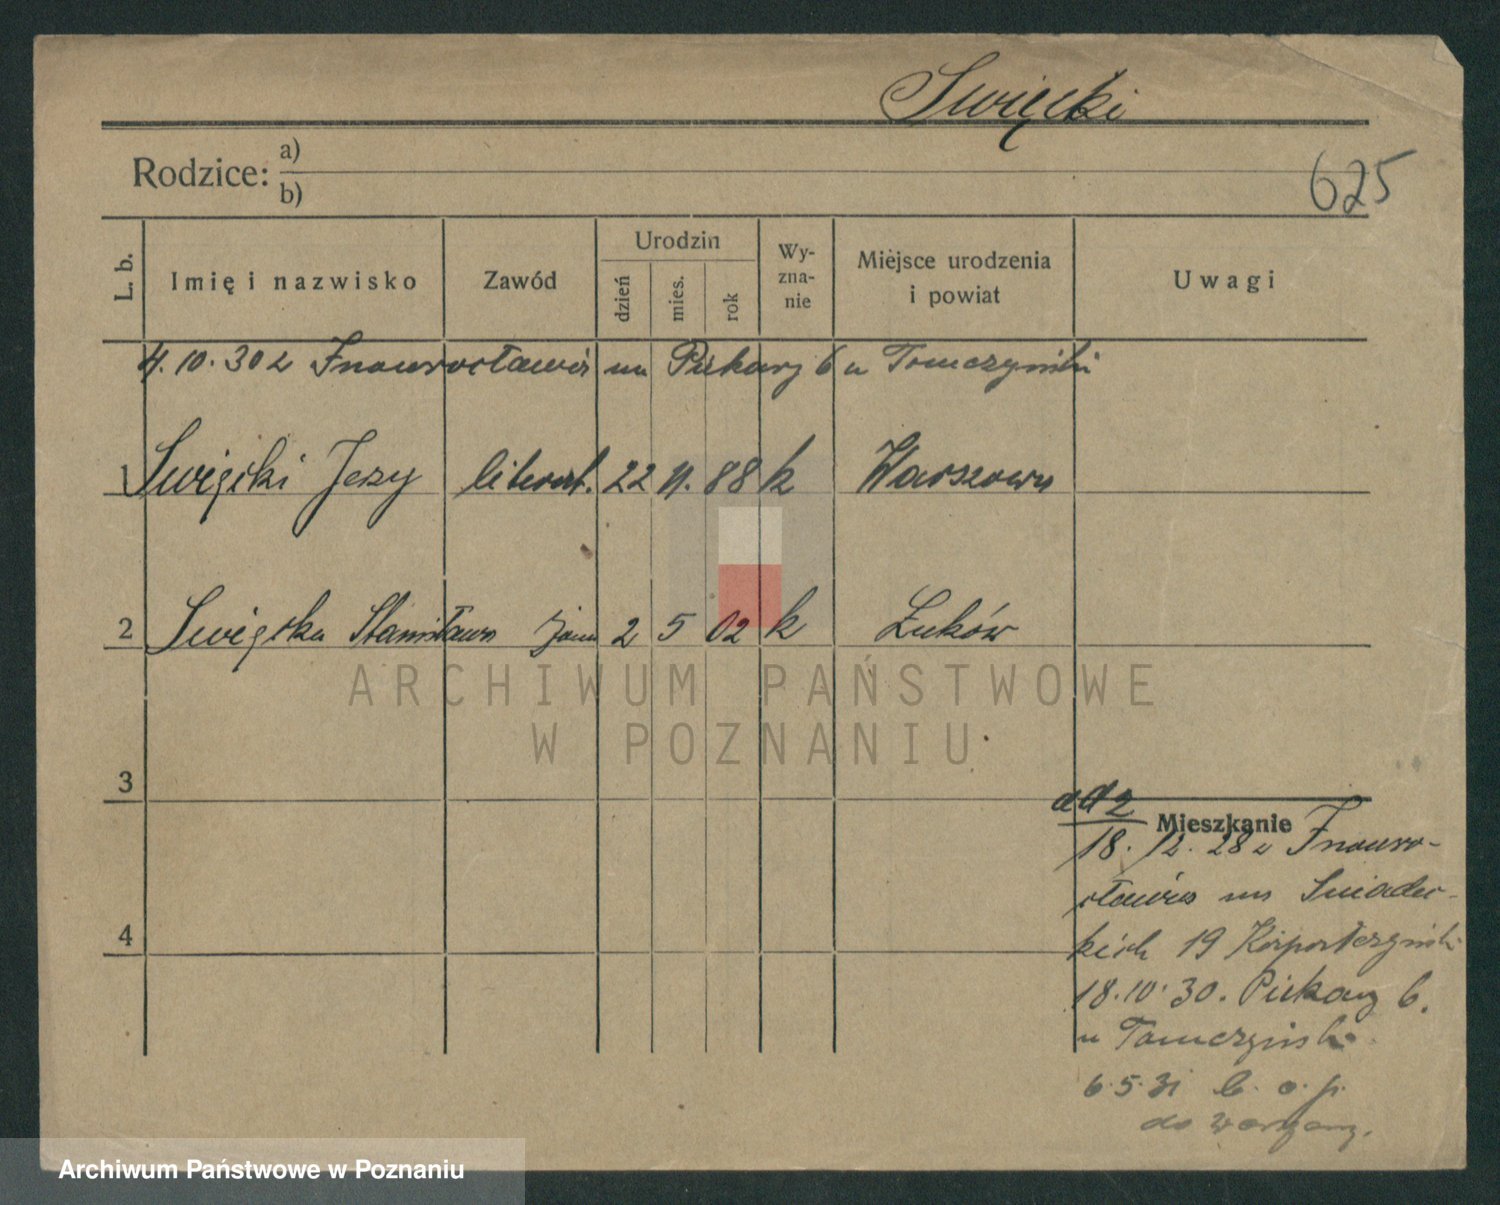 Święcki
Rodzice: a)
b)
625
L. b.
Imię i nazwisko
Zawód
Urodzin
dzień
mies.
rok
Wy-
zna-
nie
Miejsce urodzenia
i powiat
Uwagi
4.10.30 z Inowrocławia na Piekary 6 u Tomczyński
1 Święcki Jerzy literat. 22 11. 88 k Warszawa
2 Święcka Stanisława żona 2 5 02 k Łuków
3
4
ad 2
Mieszkanie
18. 12. 28 z Inowro-
cławia na Śniadec-
kich 19
18.10.30. Piekary 6.
u Tomczyńsk
6.5.31
do
ARCHIWUM PAŃSTWOWE
W POZNANIU
Archiwum Państwowe w Poznaniu